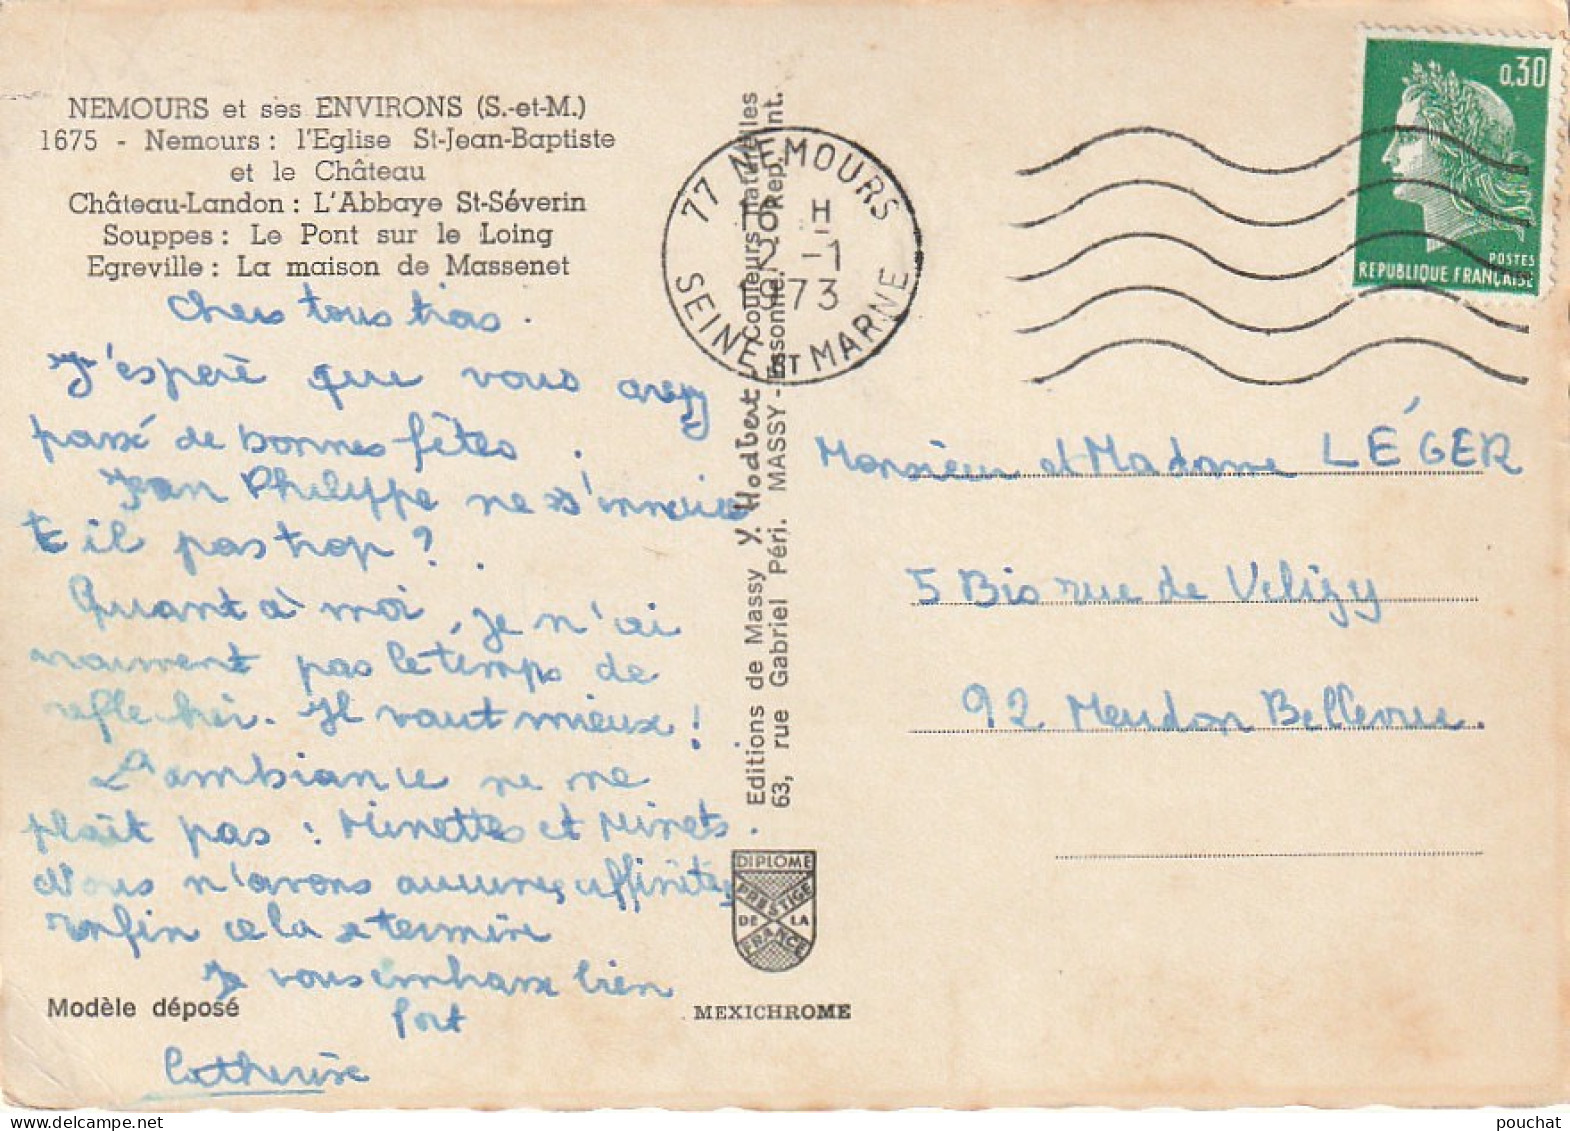 NEMOURS et ses ENVIRONS (S.-et-M.)
1675 - Nemours : l'Eglise St-Jean-Baptiste
et le Château
Château-Landon : L'Abbaye St-Séverin
Souppes : Le Pont sur le Loing
Egreville : La maison de Massenet
Chers tous trois.
J'espère que vous avez
passé de bonnes fêtes.
Jean Philippe ne s'ennuie
t il pas trop ?
Quant à moi, je n'ai
vraiment pas le temps de
réflechir. Il vaut mieux !
L'ambiance ne me
plaît pas : Minettes et Minets.
Nous n'avons aucunes affinités
enfin cela se termine
Je vous embrasse bien
fort
Catherine
Modèle déposé
Editions de Massy Y. Hodbert, Couleurs naturelles
63, rue Gabriel Péri. MASSY - Essonne. Rep. Int.
DIPLOME
PRESTIGE
DE LA
FRANCE
MEXICHROME
77 NEMOURS
H
2-1
1973
SEINE ET MARNE
0,30
POSTES
REPUBLIQUE FRANÇAISE
Monsieur et Madame LÉGER
5 Bis rue de Velizy
92 Meudon Bellevue.
pouchat